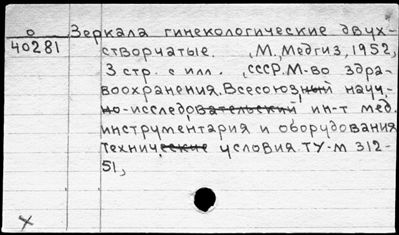 о Зеркала гинекологические двух-
40281 створчатые. , М., Медгиз, 1952,
3 стр. с илл. , СССР. М-во здра-
воохранения. Всесоюзный науч-
но-исследовательский ин-т мед.
инструментария и оборудования
технические условия ТУ-М 312-
51,
х